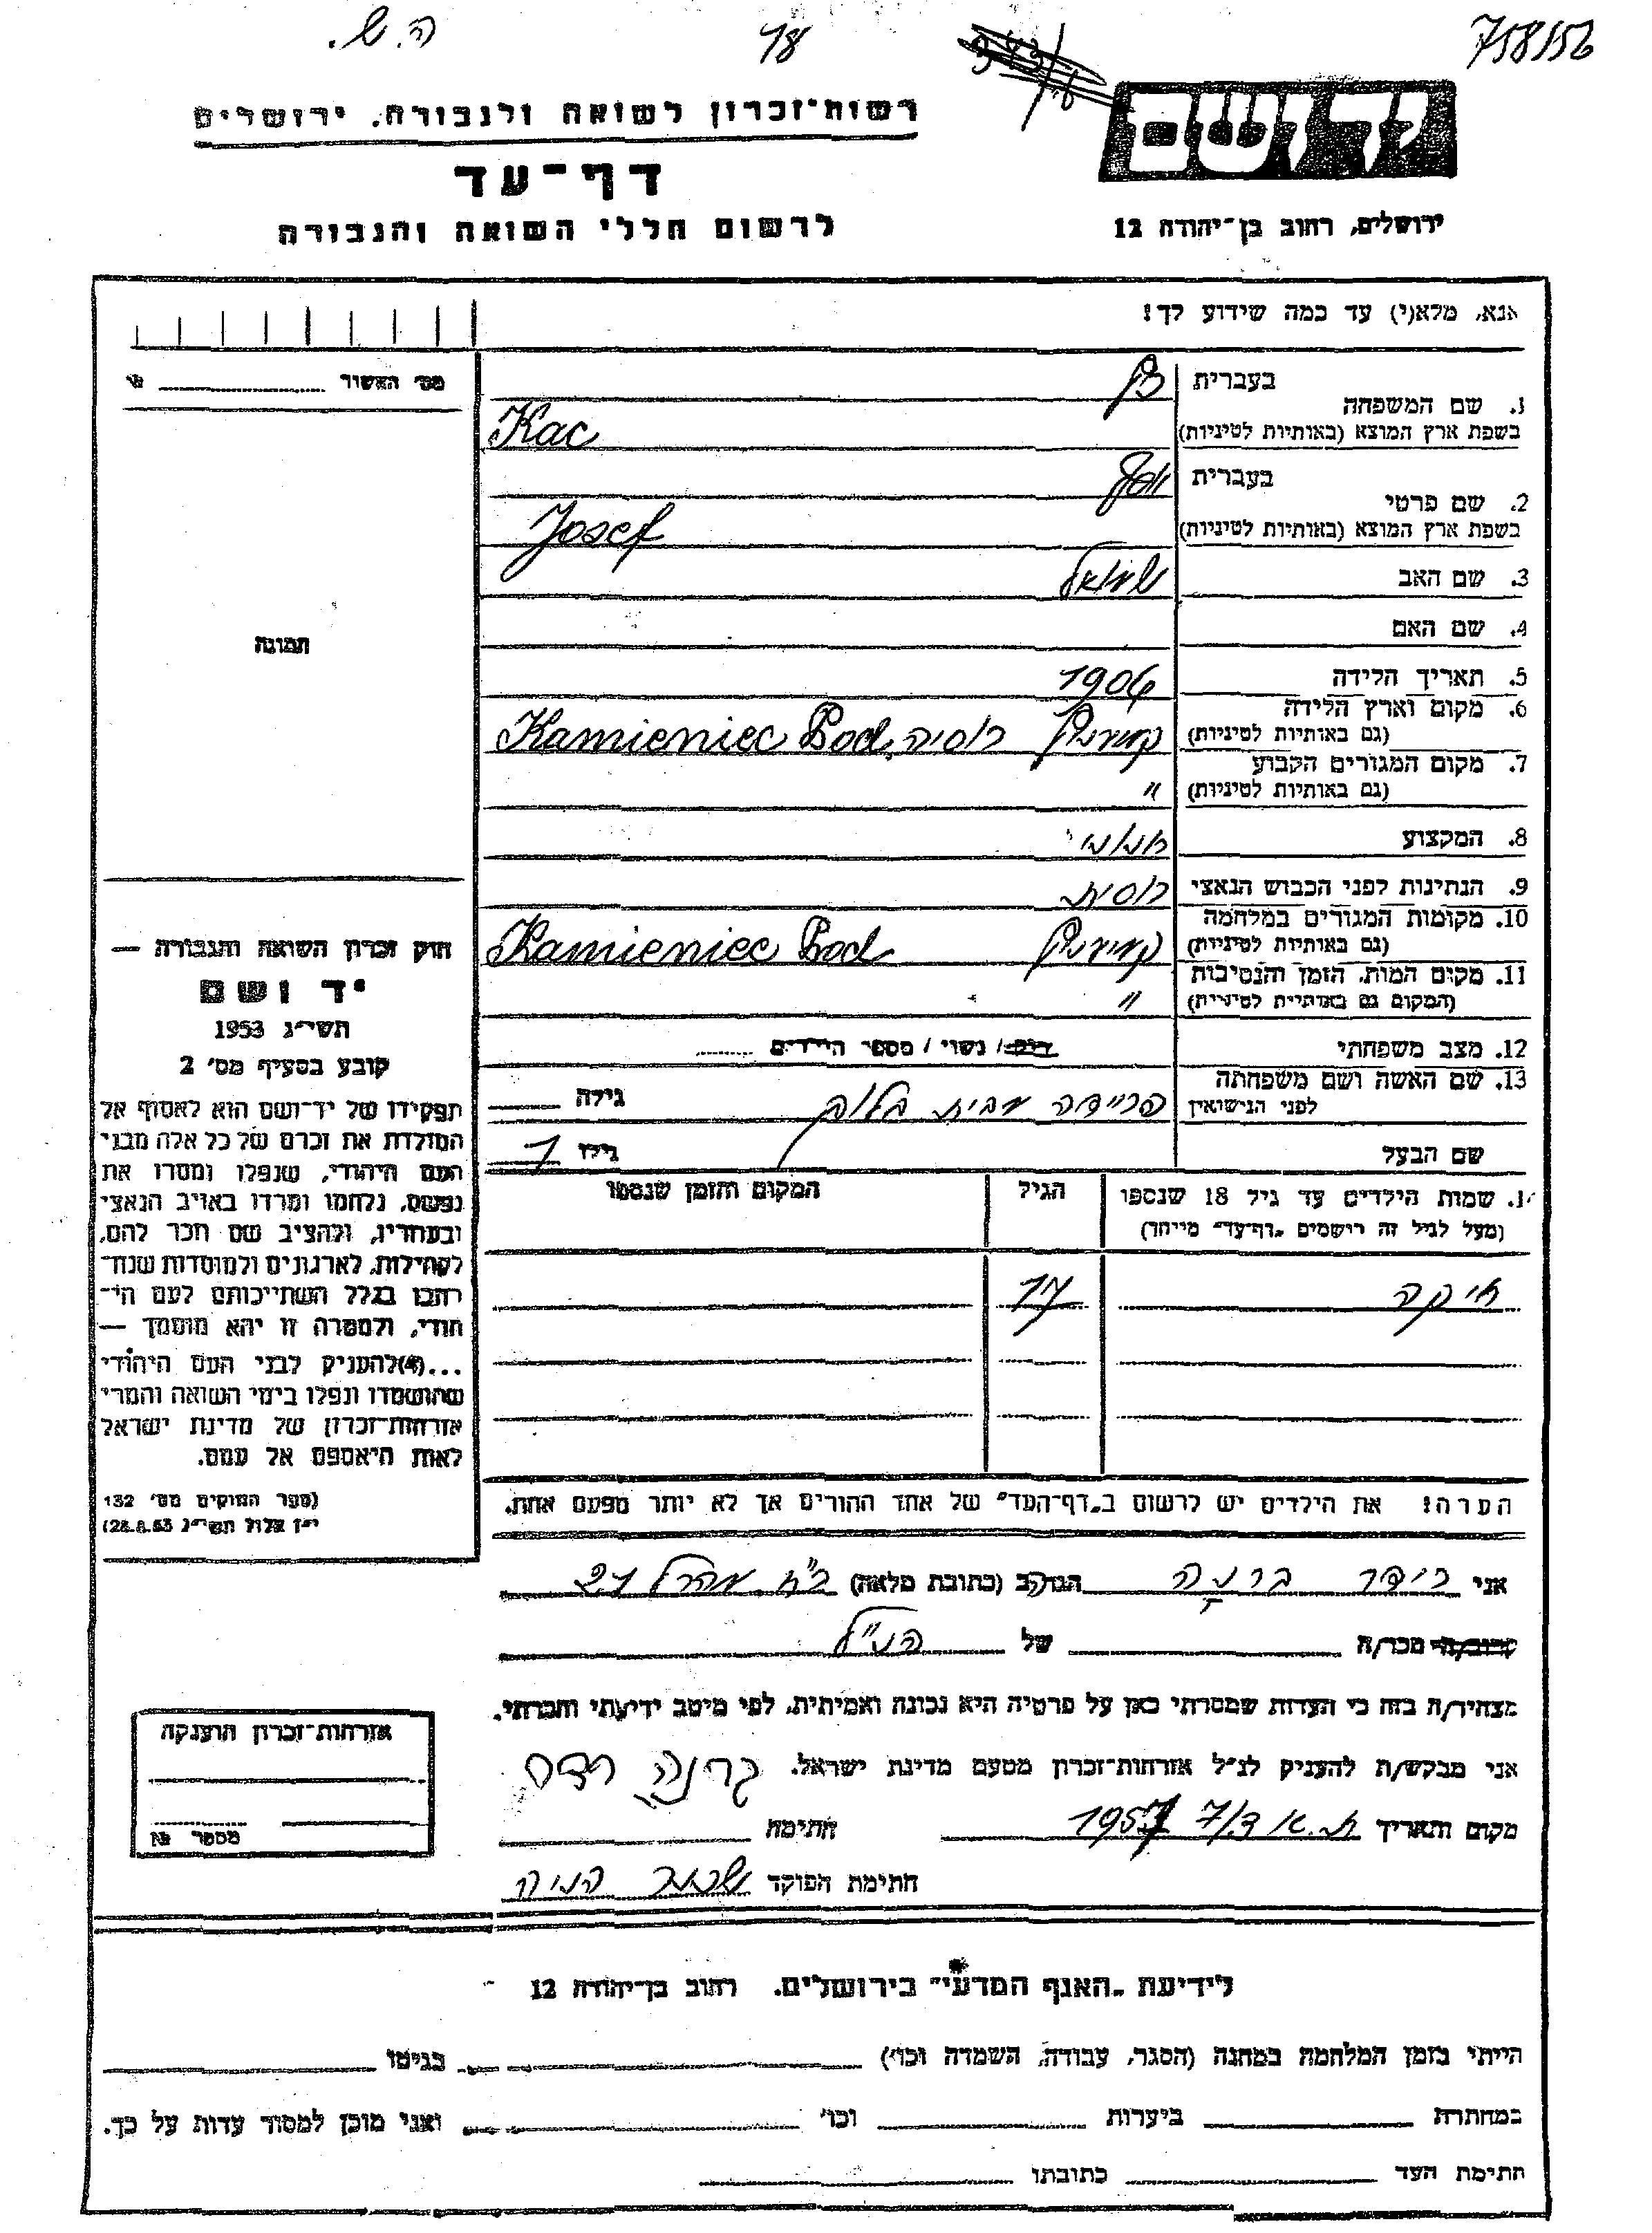 ה. ש. 18 758/56
יד ושם
רשות־זכרון לשואה ולגבורה, ירושלים
דף־עד
לרשום חללי השואה והגבורה
ירושלים, רחוב בן־יהודה 12
אנא, מלא(י) עד כמה שידוע לך!
מס׳ האשור
בעברית כץ
1. שם המשפחה
בשפת ארץ המוצא (באותיות לטיניות) Kac
בעברית יוסף
2. שם פרטי
בשפת ארץ המוצא (באותיות לטיניות) Josef
3. שם האב שמואל
4. שם האם
5. תאריך הלידה 1906
6. מקום וארץ הלידה
(גם באותיות לטיניות) קמיניץ רוסיה, Kamieniec Pod
7. מקום המגורים הקבוע
(גם באותיות לטיניות) "
8. המקצוע חנוני
9. הנתינות לפני הכבוש הנאצי רוסית
10. מקומות המגורים במלחמה
(גם באותיות לטיניות) קמיניץ Kamieniec Pod
11. מקום המות, הזמן והנסיבות
(המקום גם באותיות לטיניות) "
12. מצב משפחתי רוק/ נשוי / מספר הילדים
13. שם האשה ושם משפחתה
לפני הנישואין פריידה מבית בלוק גילה
שם הבעל גילו
שמות הילדים עד גיל 18 שנספו הגיל המקום והזמן שנספו
(מעל לגיל זה רושמים „דף־עד" מיוחד)
ריקה 17
הערה! את הילדים יש לרשום ב„דף־העד" של אחד ההורים אך לא יותר מפעם אחת.
תמונה
חוק זכרון השואה והגבורה —
יד ושם
תשי״ג 1953
קובע בסעיף מס׳ 2
תפקידו של יד־ושם הוא לאסוף אל
המולדת את זכרם של כל אלה מבני
העם היהודי, שנפלו ומסרו את
נפשם, נלחמו ומרדו באויב הנאצי
ובעוזריו, ולהציב שם וזכר להם,
לקהילות, לארגונים ולמוסדות שנח־
רבו בגלל השתייכותם לעם הי־
הודי, ולמטרה זו יהא מוסמך —
...(4)להעניק לבני העם היהודי
שהושמדו ונפלו בימי השואה והמרי
אזרחות־זכרון של מדינת ישראל
לאות היאספם אל עמם.
(ספר החוקים מס׳ 132
י״ז אלול תשי״ג 28.8.53)
אני ברניה הגר/ה ב (כתובת מלאה) 21
קרוב/ה מכר/ה של הנ״ל
מצהיר/ה בזה כי העדות שמסרתי כאן על פרטיה היא נכונה ואמיתית, לפי מיטב ידיעתי והכרתי.
אני מבקש/ת להעניק לנ״ל אזרחות־זכרון מטעם מדינת ישראל.
מקום ותאריך ת. א 3/7 1957 חתימה
חתימת הפוקד
אזרחות־זכרון הוענקה
מספר №
לידיעת „האגף המדעי" בירושלים, רחוב בן־יהודה 12
הייתי בזמן המלחמה במחנה (הסגר, עבודה, השמדה וכו׳) בגיטו
במחתרת ביערות וכו׳ ואני מוכן למסור עדות על כך.
חתימת העד כתובתו